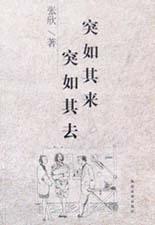 突如其来
突如其去
张欣／著